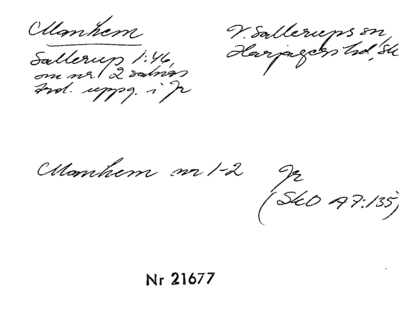 Manhem
V. Sallerups sn
Sallerup 1:46,
Harjagers hd, Sk
om nr. 2 saknas
ird. uppg. i Jr
Manhem nr 1-2 Jr
(SkO A7:135)
Nr 21677